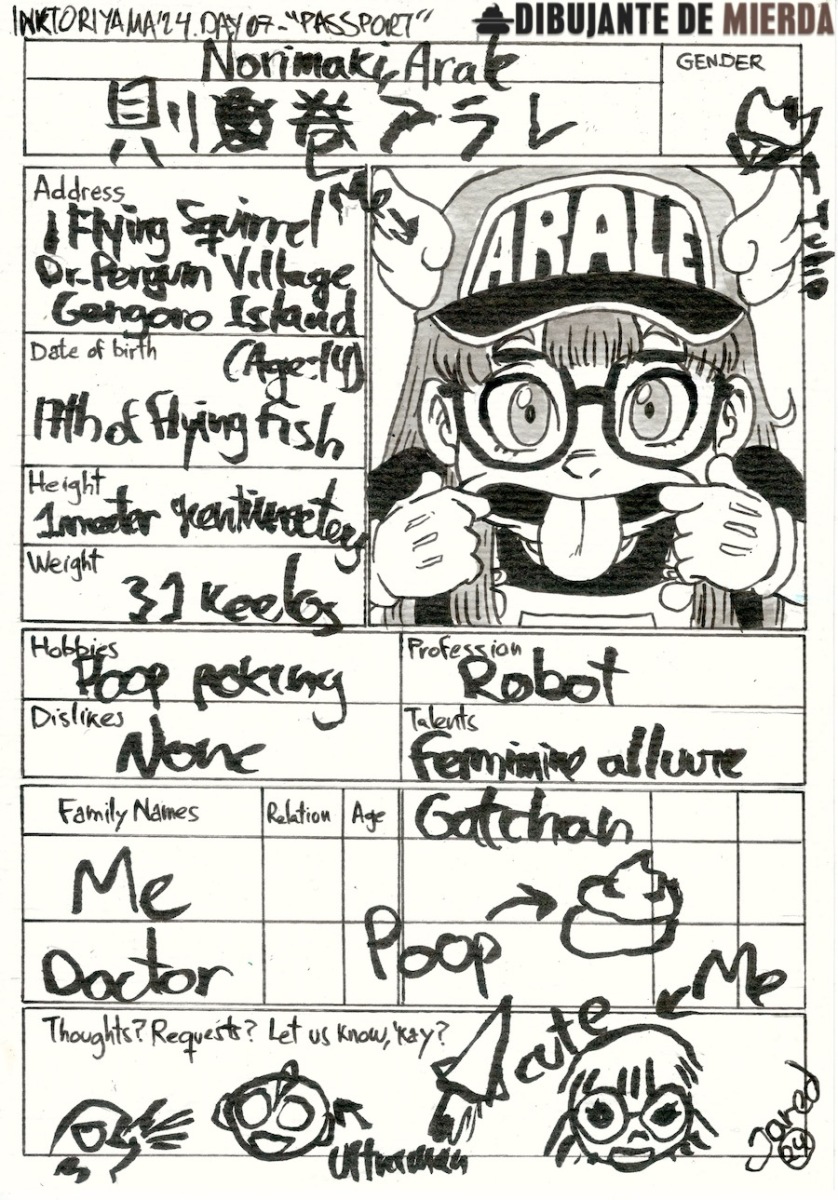 INKTORIYAMA'24. DAY 07 - "PASSPORT"
DIBUJANTE DE MIERDA
Norimaki, Arale
GENDER
巻アラレ
Me
Tulip
Address
1 Flying Squirrel
Dr. Penguin Village
Gengoro Island
ARALE
Date of birth
(Age:14)
17th of Flying Fish
Height
Weight
31 Keelos
Hobbies
Poop poking
Profession
Robot
Dislikes
None
Talents
Femimine alluure
Family Names
Relation
Age
Gatchan
Me
Poop
Doctor
Me
Thoughts? Requests? Let us know, 'kay?
cute
Ultraman
Jared
24